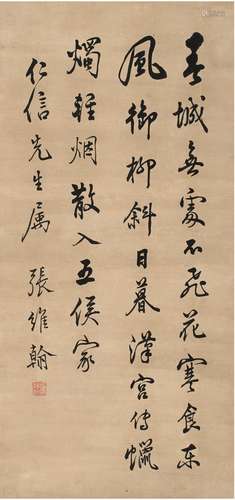 春城無處不飛花寒食東
風御柳斜日暮漢宮傳蠟
燭輕烟散入五侯家
仁信先生属 張維翰